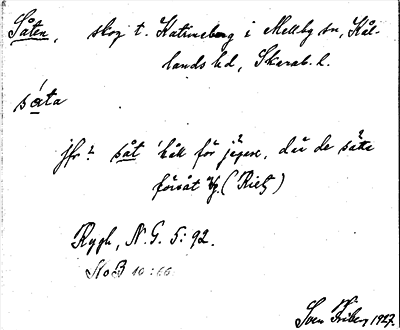 Såten, skog t. Katrineberg i Mellby sn, Kål-
lands hd, Skarab. l.
sá̊ta
jfr? såt 'håll för jägare, där de sätta
försåt Vg. (Rietz)
Rygh, N.G. 5: 92.
NoB 10:66
Sven Friberg 1927.